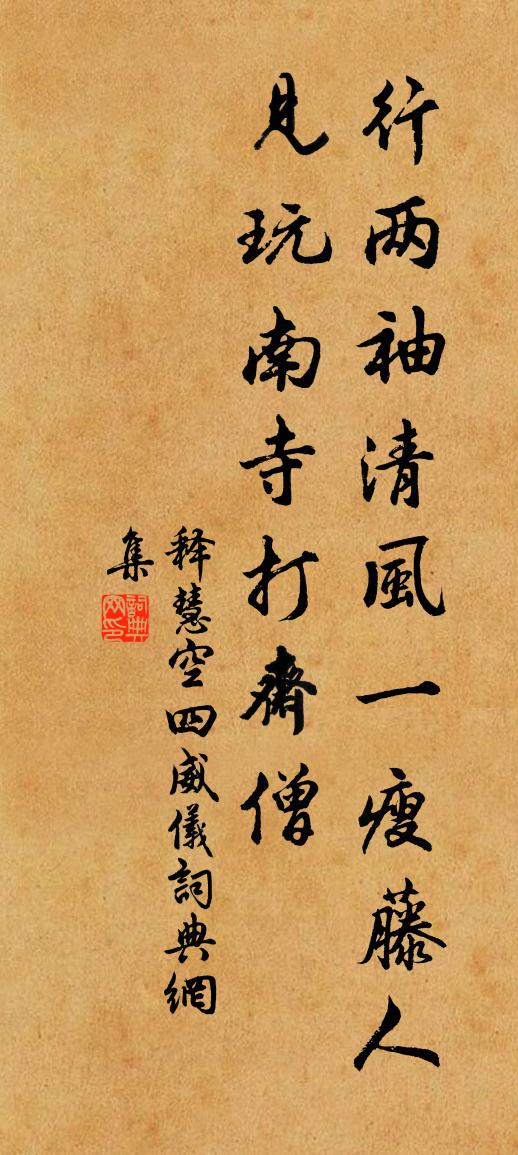 行两袖清風一瘦藤人
見玩南寺打齋僧
释慧空四威儀詞典網
集
詞典
网印